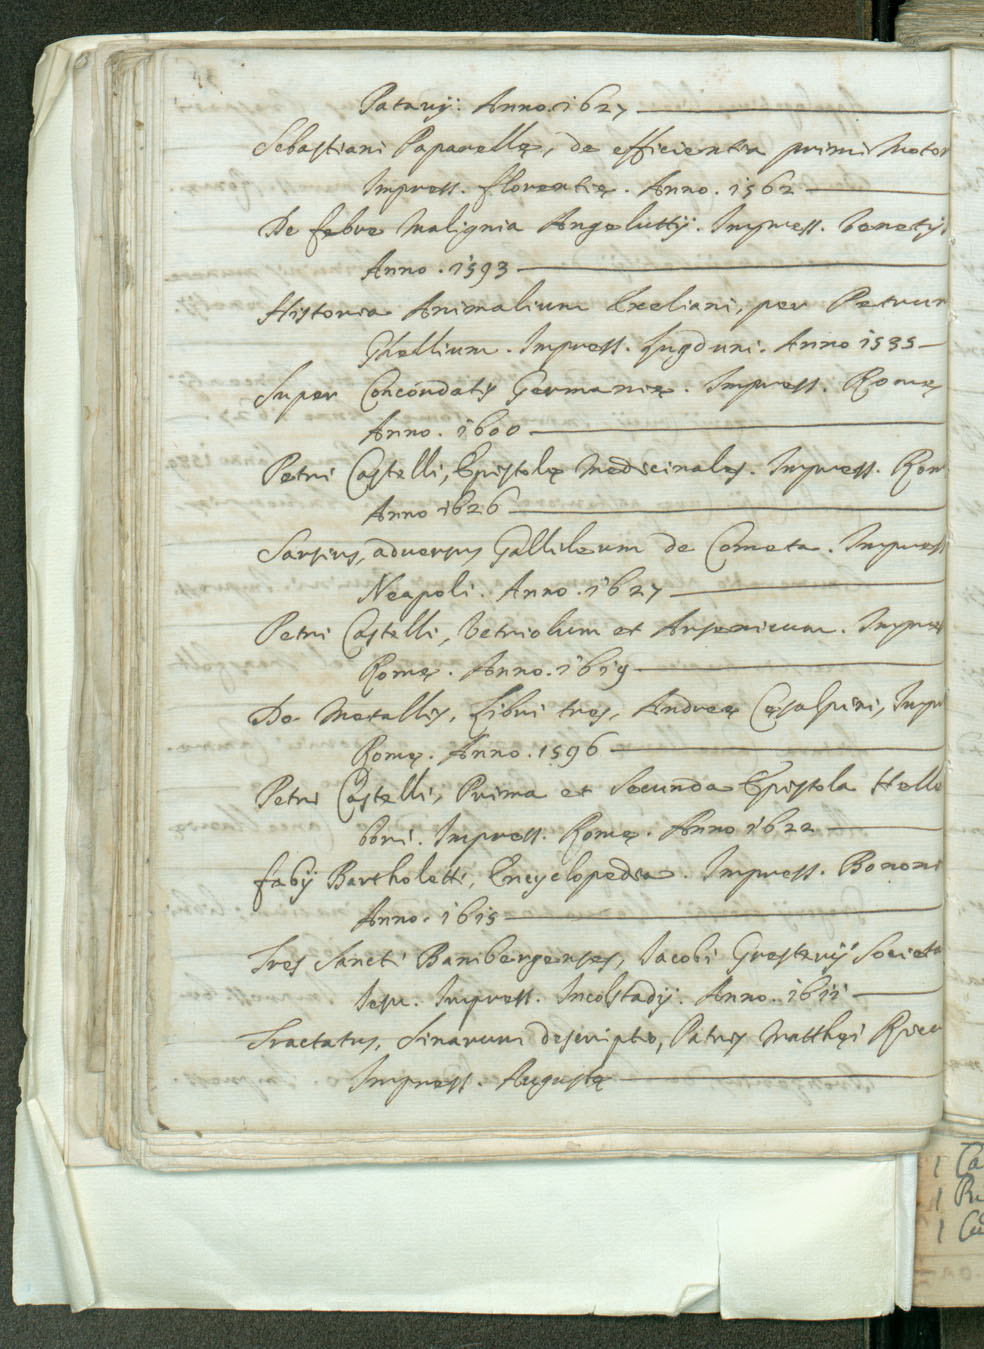 Patavij. Anno. 1627
Sebastiani Paparellę, de efficientia primi Motor
Impress. florentię. Anno. 1562
De febre Malignia Angeluttij. Impress. Venetijs
Anno. 1593
Historia Animalium Exeliani, per Petrum
Ghellium. Impress. Lugduni. Anno 1535
Super Concordatis Germanię. Impress. Romę
Anno. 1600
Petri Castelli, Epistolę Medicinales. Impress. Rom
Anno 1626
Sarsius, adversus Gallileum de Cometa. Impress
Neapoli. Anno. 1627
Petri Castelli, Vetriolum et Arsenicum. Impres
Romę. Anno. 1619
De Metallis, Libri tres, Andreę Cęsalpini, Impr
Romę. Anno. 1596
Petri Castelli, Prima et Secunda Epistola Helle
bori. Impress. Romę. Anno 1622
fabij Bartholetti, Encyclopedia. Impress. Bononi
Anno. 1615
Tres Sancti Bambergenses, Iacobi Gretserij Societa
Iesu. Impress. Incolstadij. Anno. 1611
Tractatus, Sinarum descriptio, Patris Matthęi Ricci
Impress. Augustę
1 Ca
1 Ru
1